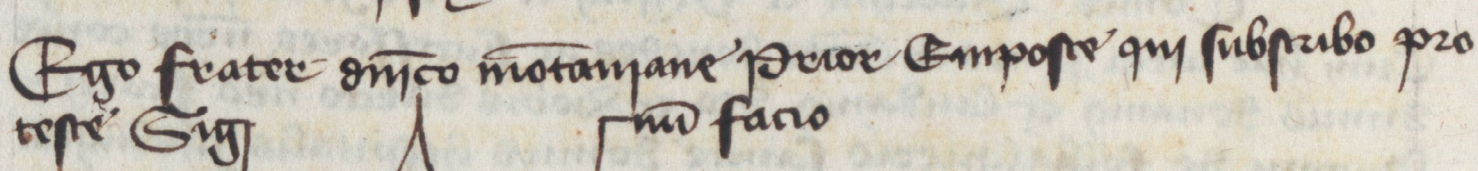 Ego frater dnico motaniane Prior Emposte qui subscribo pro
teste Sig nu facio